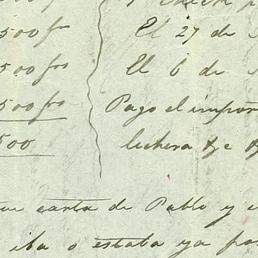 500 frs
El 27 de
500 frs
El 6 de
500 frs
Pago el impor
500
lechera &c &
carta de Pablo y
iba o estaba ya